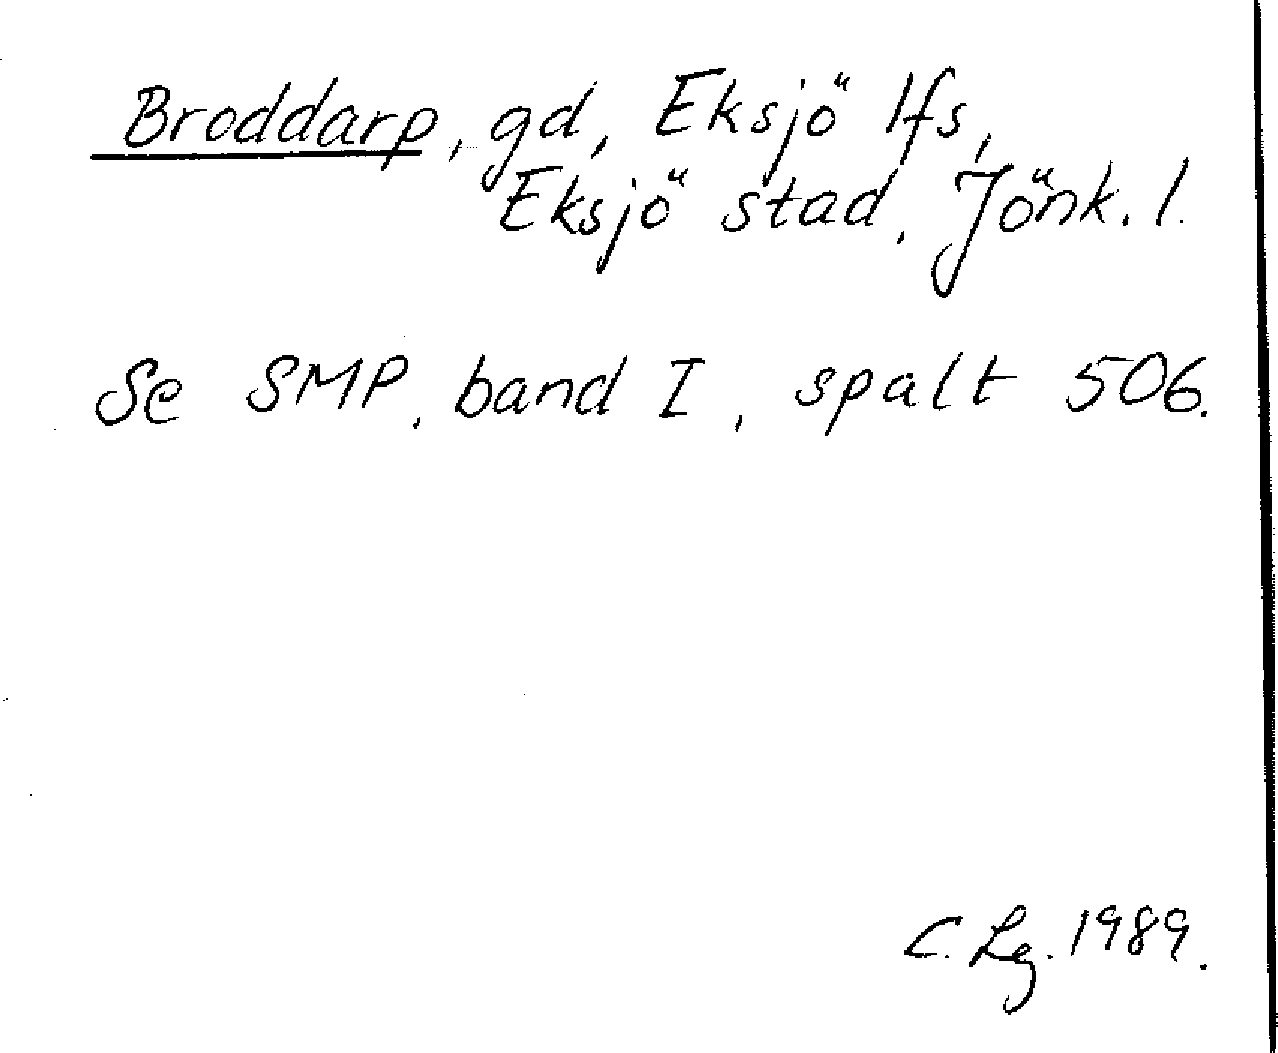 Broddarp, gd, Eksjö lfs,
Eksjö stad, Jönk. l.
Se SMP, band I, spalt 506.
C. Lg. 1989.